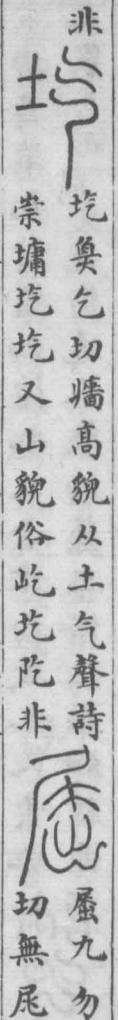 非
圪
圪奐乞切牆高貌从土气聲詩
崇墉圪圪又山貌俗屹圪阣非
屈
屈九勿
切無尾